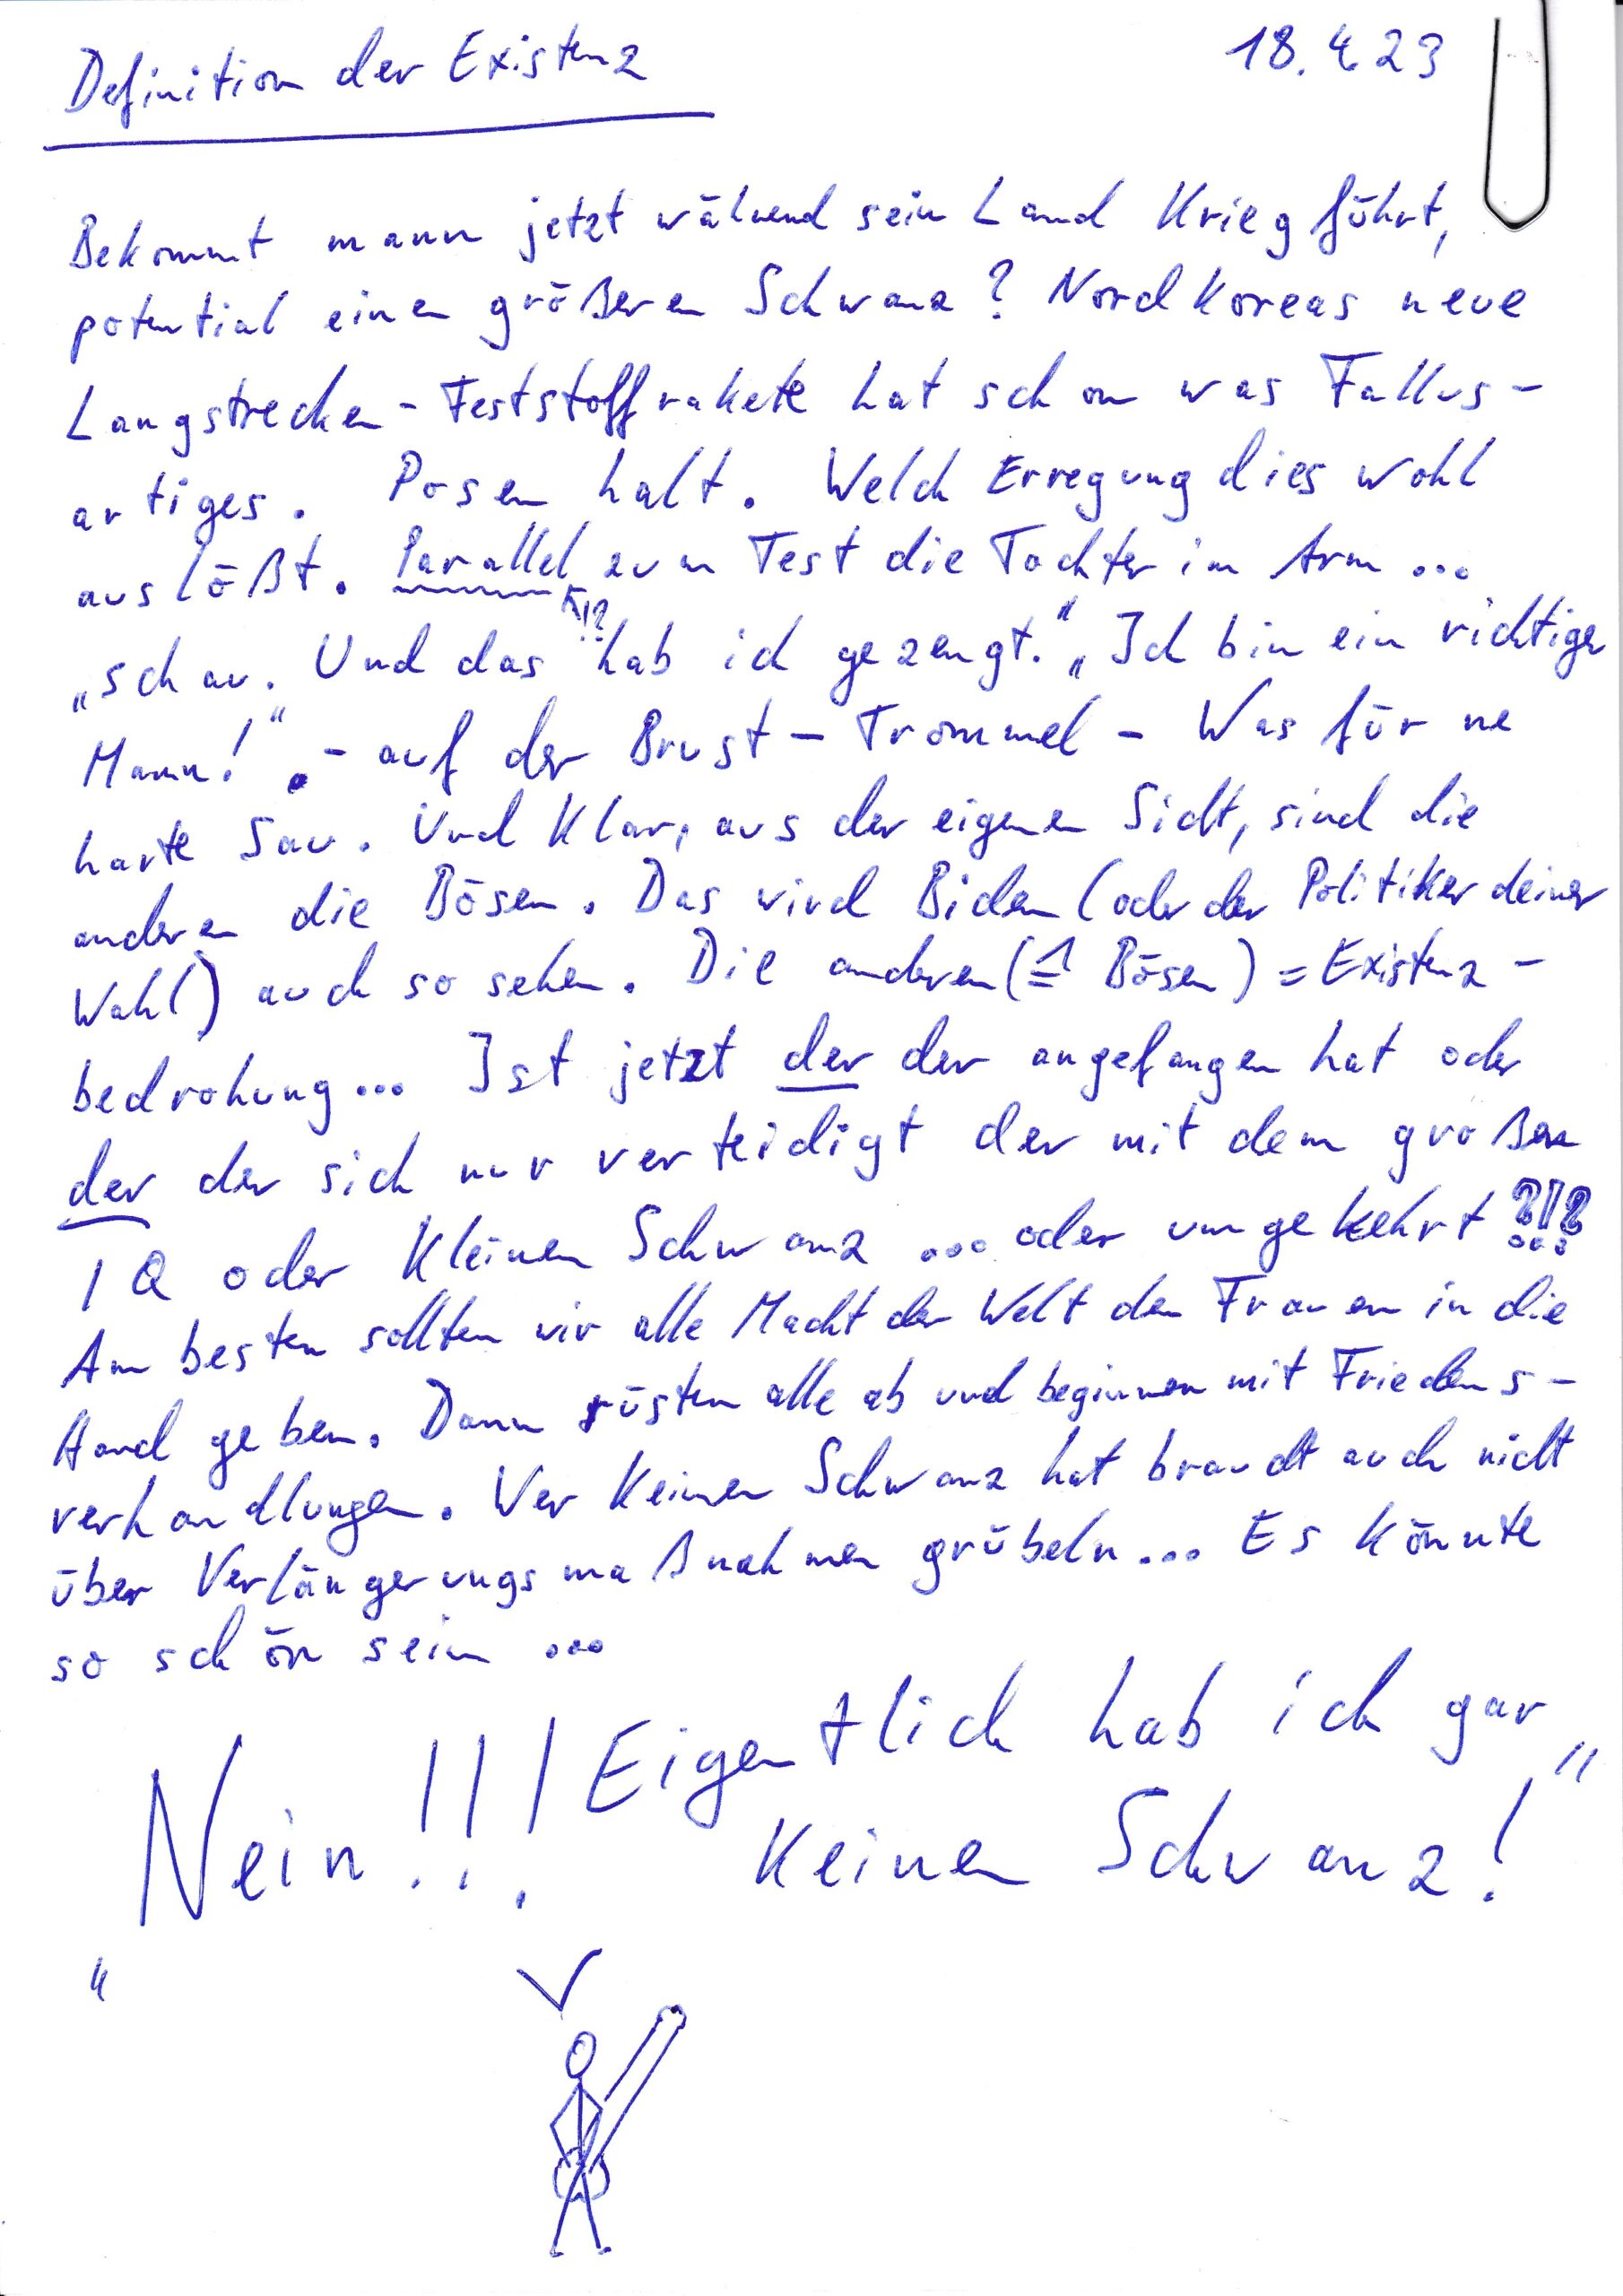 Definition der Existenz
18.4.23
Bekommt mann jetzt während sein Land Krieg führt,
potential einen größeren Schwanz? Nordkoreas neue
Langstrecken-Feststoffrakete hat schon was Fallus-
artiges. Posen halt. Welch Erregung dies wohl
auslößt. Parallel zum Test die Tochter im Arm...
!?
„schau. Und das hab ich gezeugt.“ „Ich bin ein richtiger
Mann!“. - auf der Brust - Trommel - Was für ne
harte Sau. Und Klar, aus der eigenen Sicht, sind die
anderen die Bösen. Das wird Biden (oder der Politiker deiner
Wahl) auch so sehen. Die anderen (≙ Bösen) = Existenz-
bedrohung... Ist jetzt der der angefangen hat oder
der der sich nur verteidigt der mit dem großen
IQ oder kleinen Schwanz ... oder umgekehrt ?!?
Am besten sollten wir alle Macht der Welt den Frauen in die
Hand geben. Dann rüsten alle ab und beginnen mit Friedens-
verhandlungen. Wer keinen Schwanz hat braucht auch nicht
über Verlängerungsmaßnahmen grübeln... Es könnte
so schön sein ...
„Nein!!! Eigentlich hab ich gar
keinen Schwanz!“